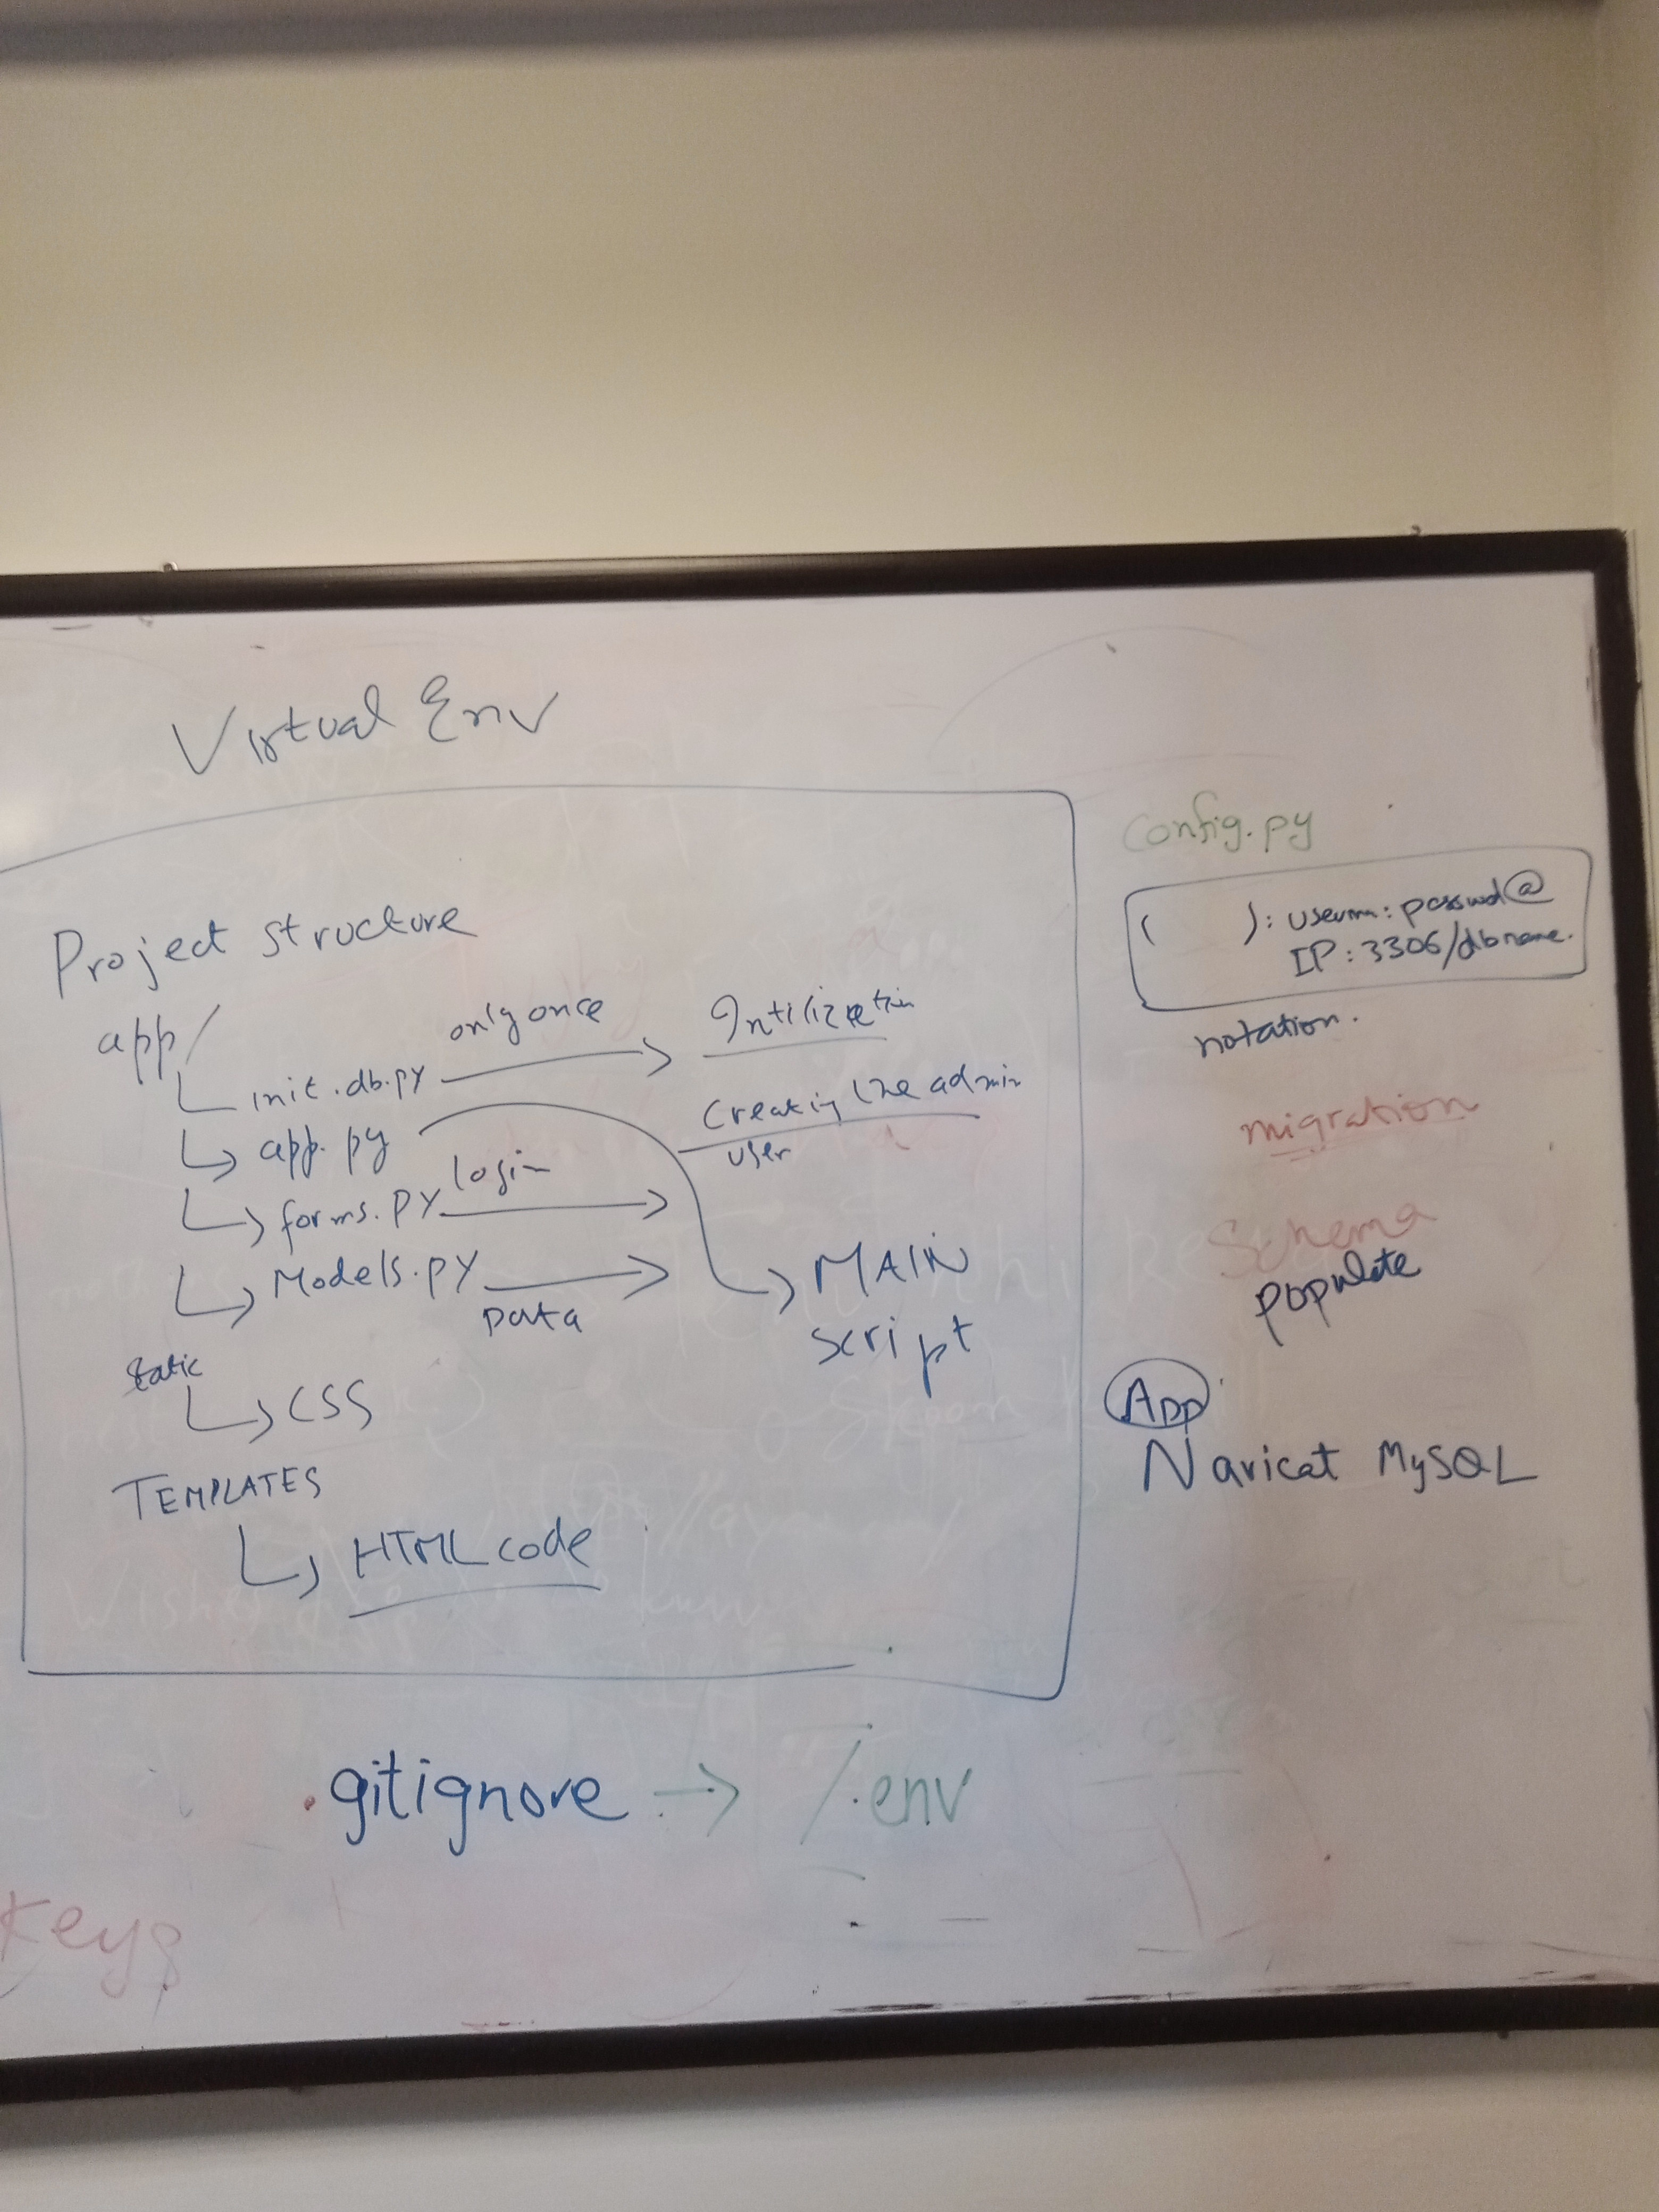 Virtual Env
Project structure
app/
init.db.py
only once
Intilization
Creating the admin
user
app.py
MAIN
script
forms.py
login
Models.py
Data
static
CSS
TEMPLATES
HTML code
.gitignore → /.env
Keys
config.py
( ): userna: passwd@
IP:3306/dbname.
notation.
migration
Schema
populate
App
Navicat MySQL